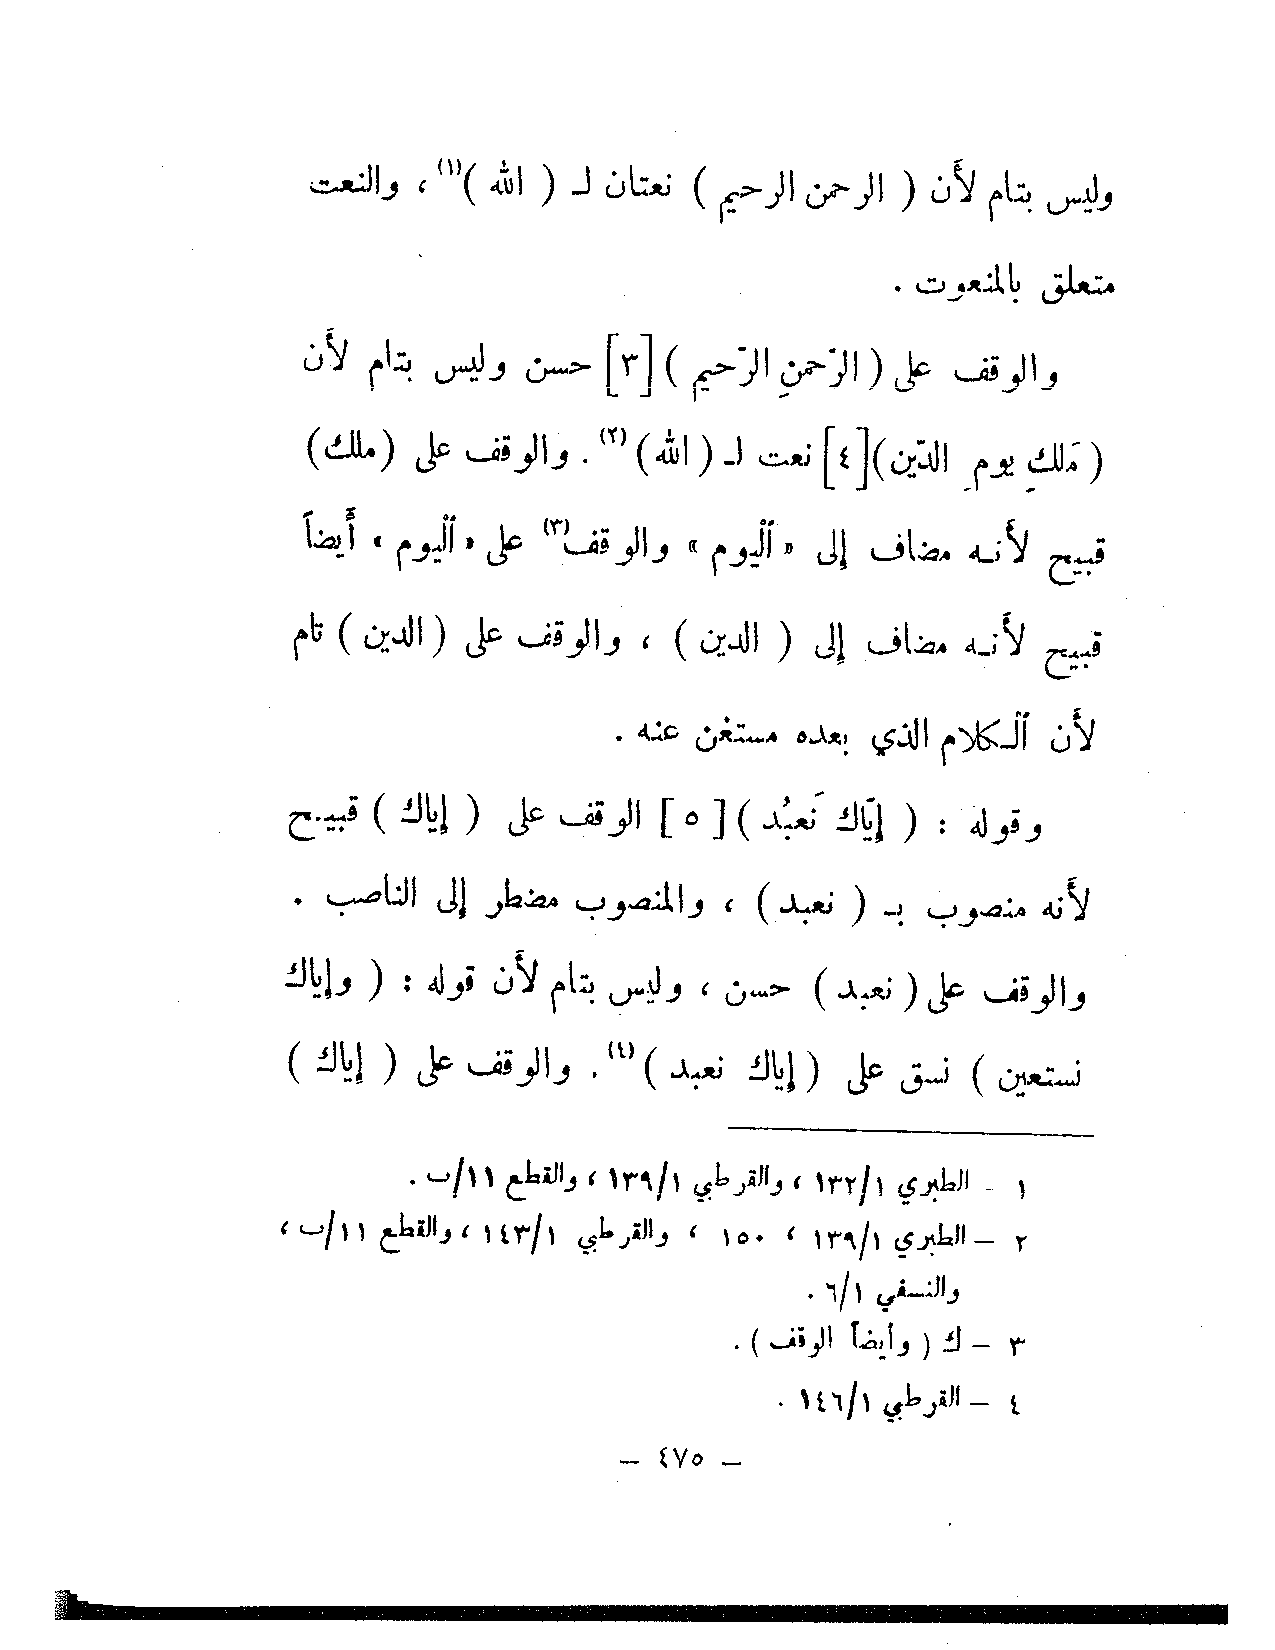 وليس بتام لأن ( الرحمن الرحيم ) نعتان لـ ( الله )(١) ، والنعت
متعلق بالمنعوت .
والوقف على ( الرّحمنِ الرّحيم ) [٣] حسن وليس بتام لأن
( مَلكِ يومِ الدّين )[٤] نعت لـ ( الله )(٢) . والوقف على (ملك)
قبيح لأنه مضاف إلى « اليوم » والوقف(٣) على « اليوم » أيضاً
قبيح لأنه مضاف إلى ( الدين ) ، والوقف على ( الدين ) تام
لأن الكلام الذي بعده مستغن عنه .
وقوله : ( إيّاك نَعبُد )[ ٥ ] الوقف على ( إياك ) قبيح
لأنه منصوب بـ ( نعبد ) ، والمنصوب مضطر إلى الناصب .
والوقف على ( نعبد ) حسن ، وليس بتام لأن قوله : ( وإياك
نستعين ) نسق على ( إياك نعبد )(٤) . والوقف على ( إياك )
١ - الطبري ١٣٢/١ ، والقرطبي ١٣٩/١ ، والقطع ١١/ب .
٢ - الطبري ١٣٩/١ ، ١٥٠ ، والقرطبي ١٤٣/١ ، والقطع ١١/ب ،
والنسفي ٦/١ .
٣ - ك ( وأيضاً الوقف ) .
٤ - القرطبي ١٤٦/١ .
- ٤٧٥ -